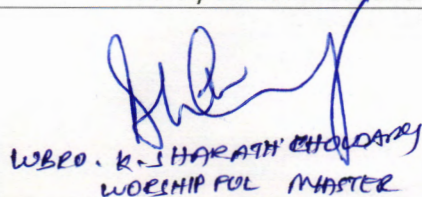 WBRO. K. SHARATH CHOWDARY
WORSHIPFUL MASTER